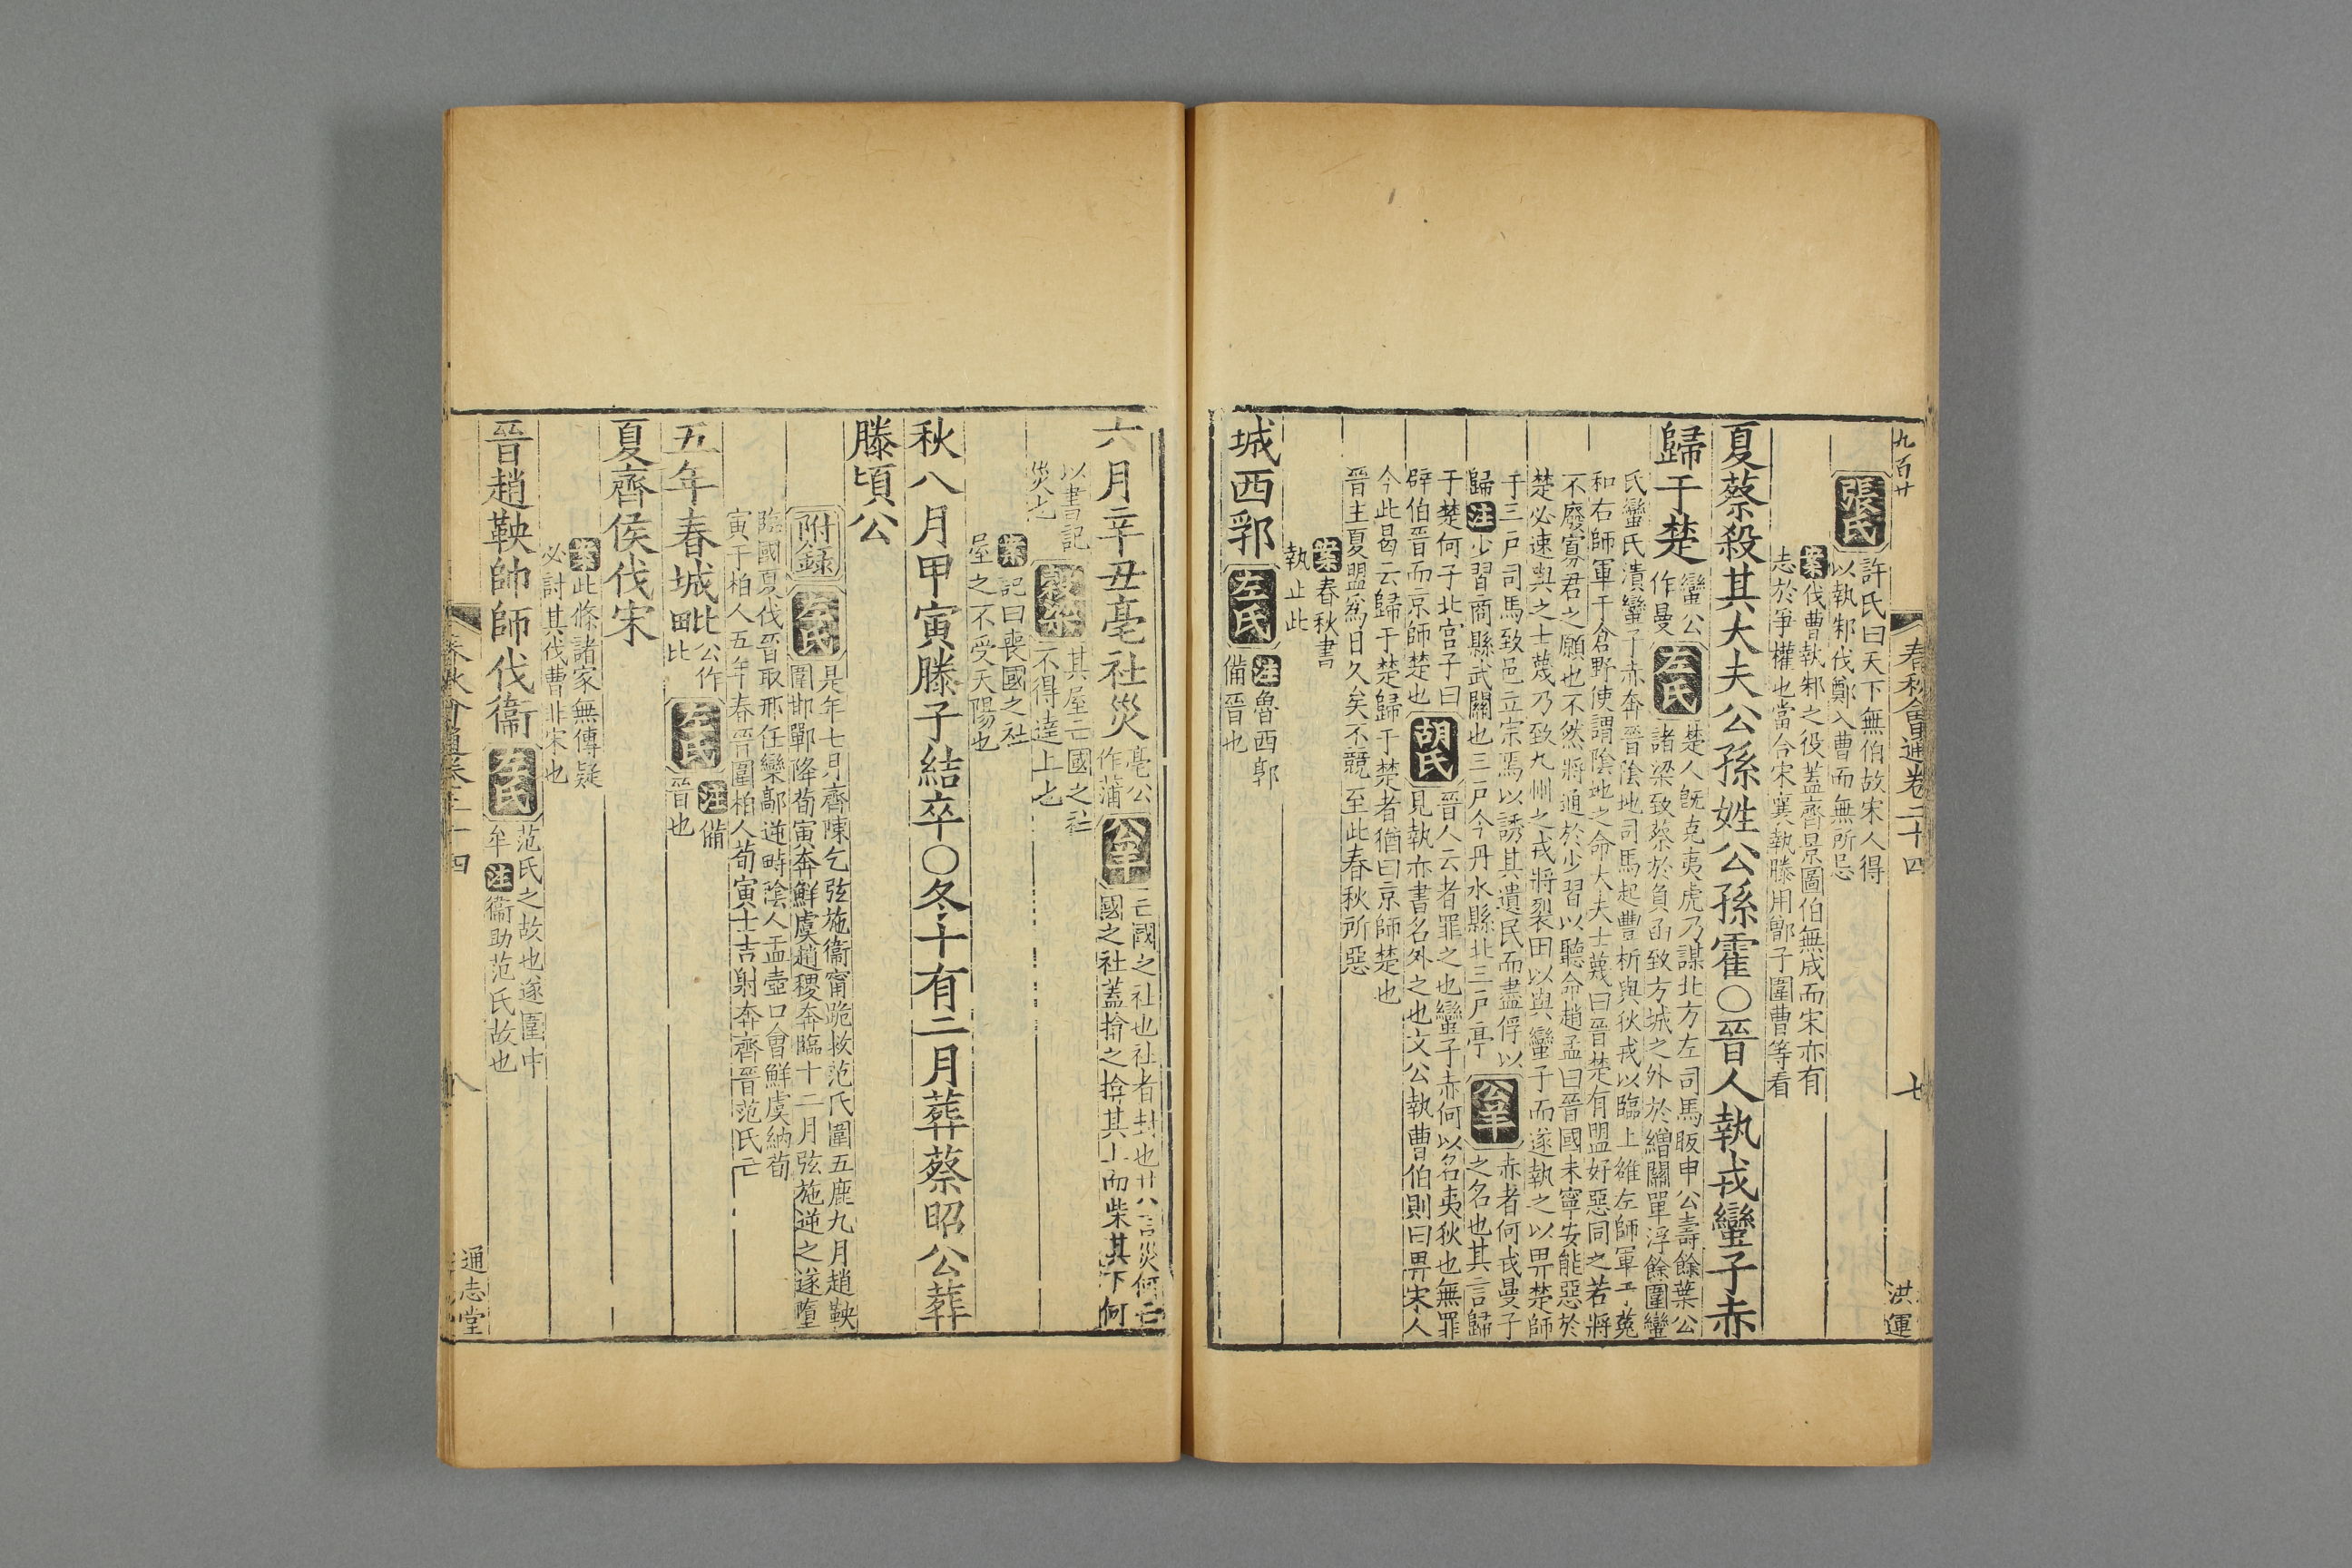 九百廿
春秋會通卷二十四
七
洪運
張氏
許氏曰天下無伯故宋人得
以執邾伐鄭入曹而無所忌
案伐曹執邾之役蓋齊景圖伯無成而宋亦有
志於爭權也當合宋襄執滕用鄫子圍曹等看
夏蔡殺其大夫公孫姓公孫霍〇晉人執戎蠻子赤
歸于楚
蠻公
作曼
左氏
楚人旣克夷虎乃謀北方左司馬眅申公壽餘葉公
諸梁致蔡於負函致方城之外於繒關單浮餘圍蠻
氏蠻氏潰蠻子赤奔晉陰地司馬起豐析與狄戎以臨上雒左師軍于菟
和右師軍于倉野使謂陰地之命大夫士蔑曰晉楚有盟好惡同之若將
不廢寡君之願也不然將通於少習以聽命趙孟曰晉國未寧安能惡於
楚必速與之士蔑乃致九州之戎將裂田以與蠻子而遂執之以畀楚師
于三戶司馬致邑立宗焉以誘其遺民而盡俘以
歸注少習商縣武關也三戶今丹水縣北三戶亭
公羊
赤者何戎曼子
之名也其言歸
于楚何子北宮子曰
辟伯晉而京師楚也
胡氏
晉人云者罪之也蠻子赤何以名夷狄也無罪
見執亦書名外之也文公執曹伯則曰畀宋人
今此曷云歸于楚歸于楚者猶曰京師楚也
晉主夏盟為日久矣不競至此春秋所惡
案春秋書
執止此
城西郛
左氏
注魯西郛
備晉也
六月辛丑亳社災
亳公
作蒲
公羊
亡國之社也社者封也廿八言災何亡
國之社蓋揜之揜其上而柴其下何
以書記
災也
穀梁
其屋亡國之社
不得達上也
案記曰喪國之社
屋之不受天陽也
秋八月甲寅滕子結卒〇冬十有二月葬蔡昭公葬
滕頃公
附錄
左氏
是年七月齊陳乞弦施衞甯跪救范氏圍五鹿九月趙鞅
圍邯鄲降荀寅奔鮮虞趙稷奔臨十二月弦施逆之遂墮
臨國夏伐晉取邢任欒鄗逆畤陰人盂壺口會鮮虞納荀
寅于柏人五年春晉圍柏人荀寅士吉射奔齊晉范氏亡
五年春城毗
公作
比
左氏
注備
晉也
夏齊侯伐宋
案此條諸家無傳疑
必討其伐曹非宋也
晉趙鞅帥師伐衞
左氏
范氏之故也遂圍中
牟注衞助范氏故也
春秋會通卷二十四
八
通志堂